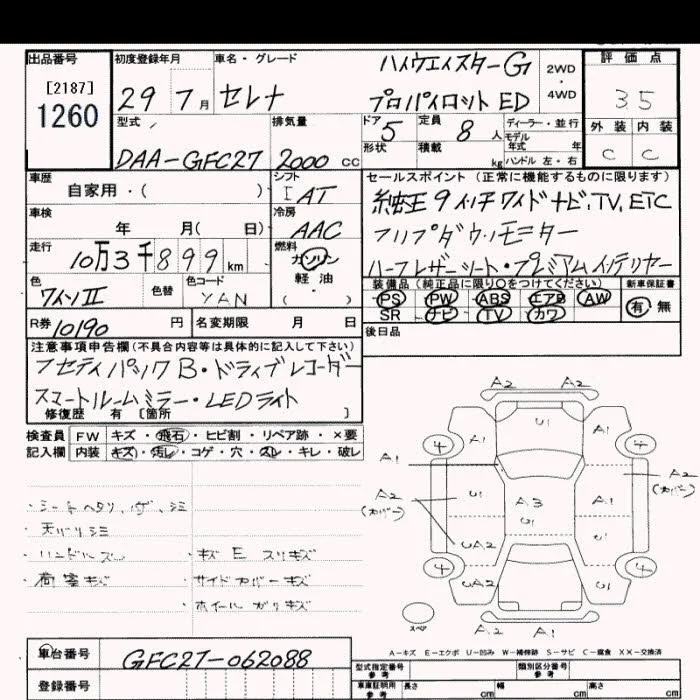 出品番号
[2187]
1260
初度登録年月
29 7月
車名・グレード
セレナ
ハイウェイスターG
プロパイロットED
2WD
・
4WD
評価点
3.5
外装 内装
C C
型式
DAA-GFC27
排気量
2000 cc
ドア
5
定員
8人
ディーラー・並行
モデル
年式 年
形状
積載 kg
ハンドル 左・右
車歴
自家用・( )
シフト
IAT
車検
年 月( 日)
冷房
AAC
走行
10万3千899km
燃料
ガソリン
軽油
( )
色
ワインII
色替
色コード
XAN
R券 10190 円
名変期限 月 日
セールスポイント (正常に機能するものに限ります)
純正9インチワイドナビ、TV、ETC
フリップダウンモニター
ハーフレザーシート・プレミアムインテリヤー
装備品 (純正品に限り○をつけてください)
新車保証書
PS PW ABS エアB AW
SR ナビ TV カワ
有 無
後日品
注意事項申告欄 (不具合内容等は具体的に記入して下さい)
フセティパックB・ドライブレコーダー
スマートルームミラー・LEDライト
修復歴 有 〔箇所 〕
検査員 FW キズ・飛石・ヒビ割・リペア跡・×要
記入欄 内装 キズ・汚レ・コゲ・穴・スレ・キレ・破レ
・シートヘタリ、ハゲ、シミ
・天バリシミ
・ハンドルスレ
・荷室キズ
・キズ E スリキズ
・サイドカバーキズ
・ホイールガリキズ
A2 A2
U1
A1 A1
4 4
A1
A2
(カバー)
A2
(カバー)
U1 A3 A1
U1
UA2 A2
4 4
UA2 U1
スペア
A2 A1
A-キズ E-エクボ U-凹み W-補修跡 S-サビ C-腐食 XX-交換済
車台番号
GFC27-062088
登録番号
型式指定番号
参考
類別区分番号
参考
車庫証明用
参考
長さ cm 幅 cm 高さ cm